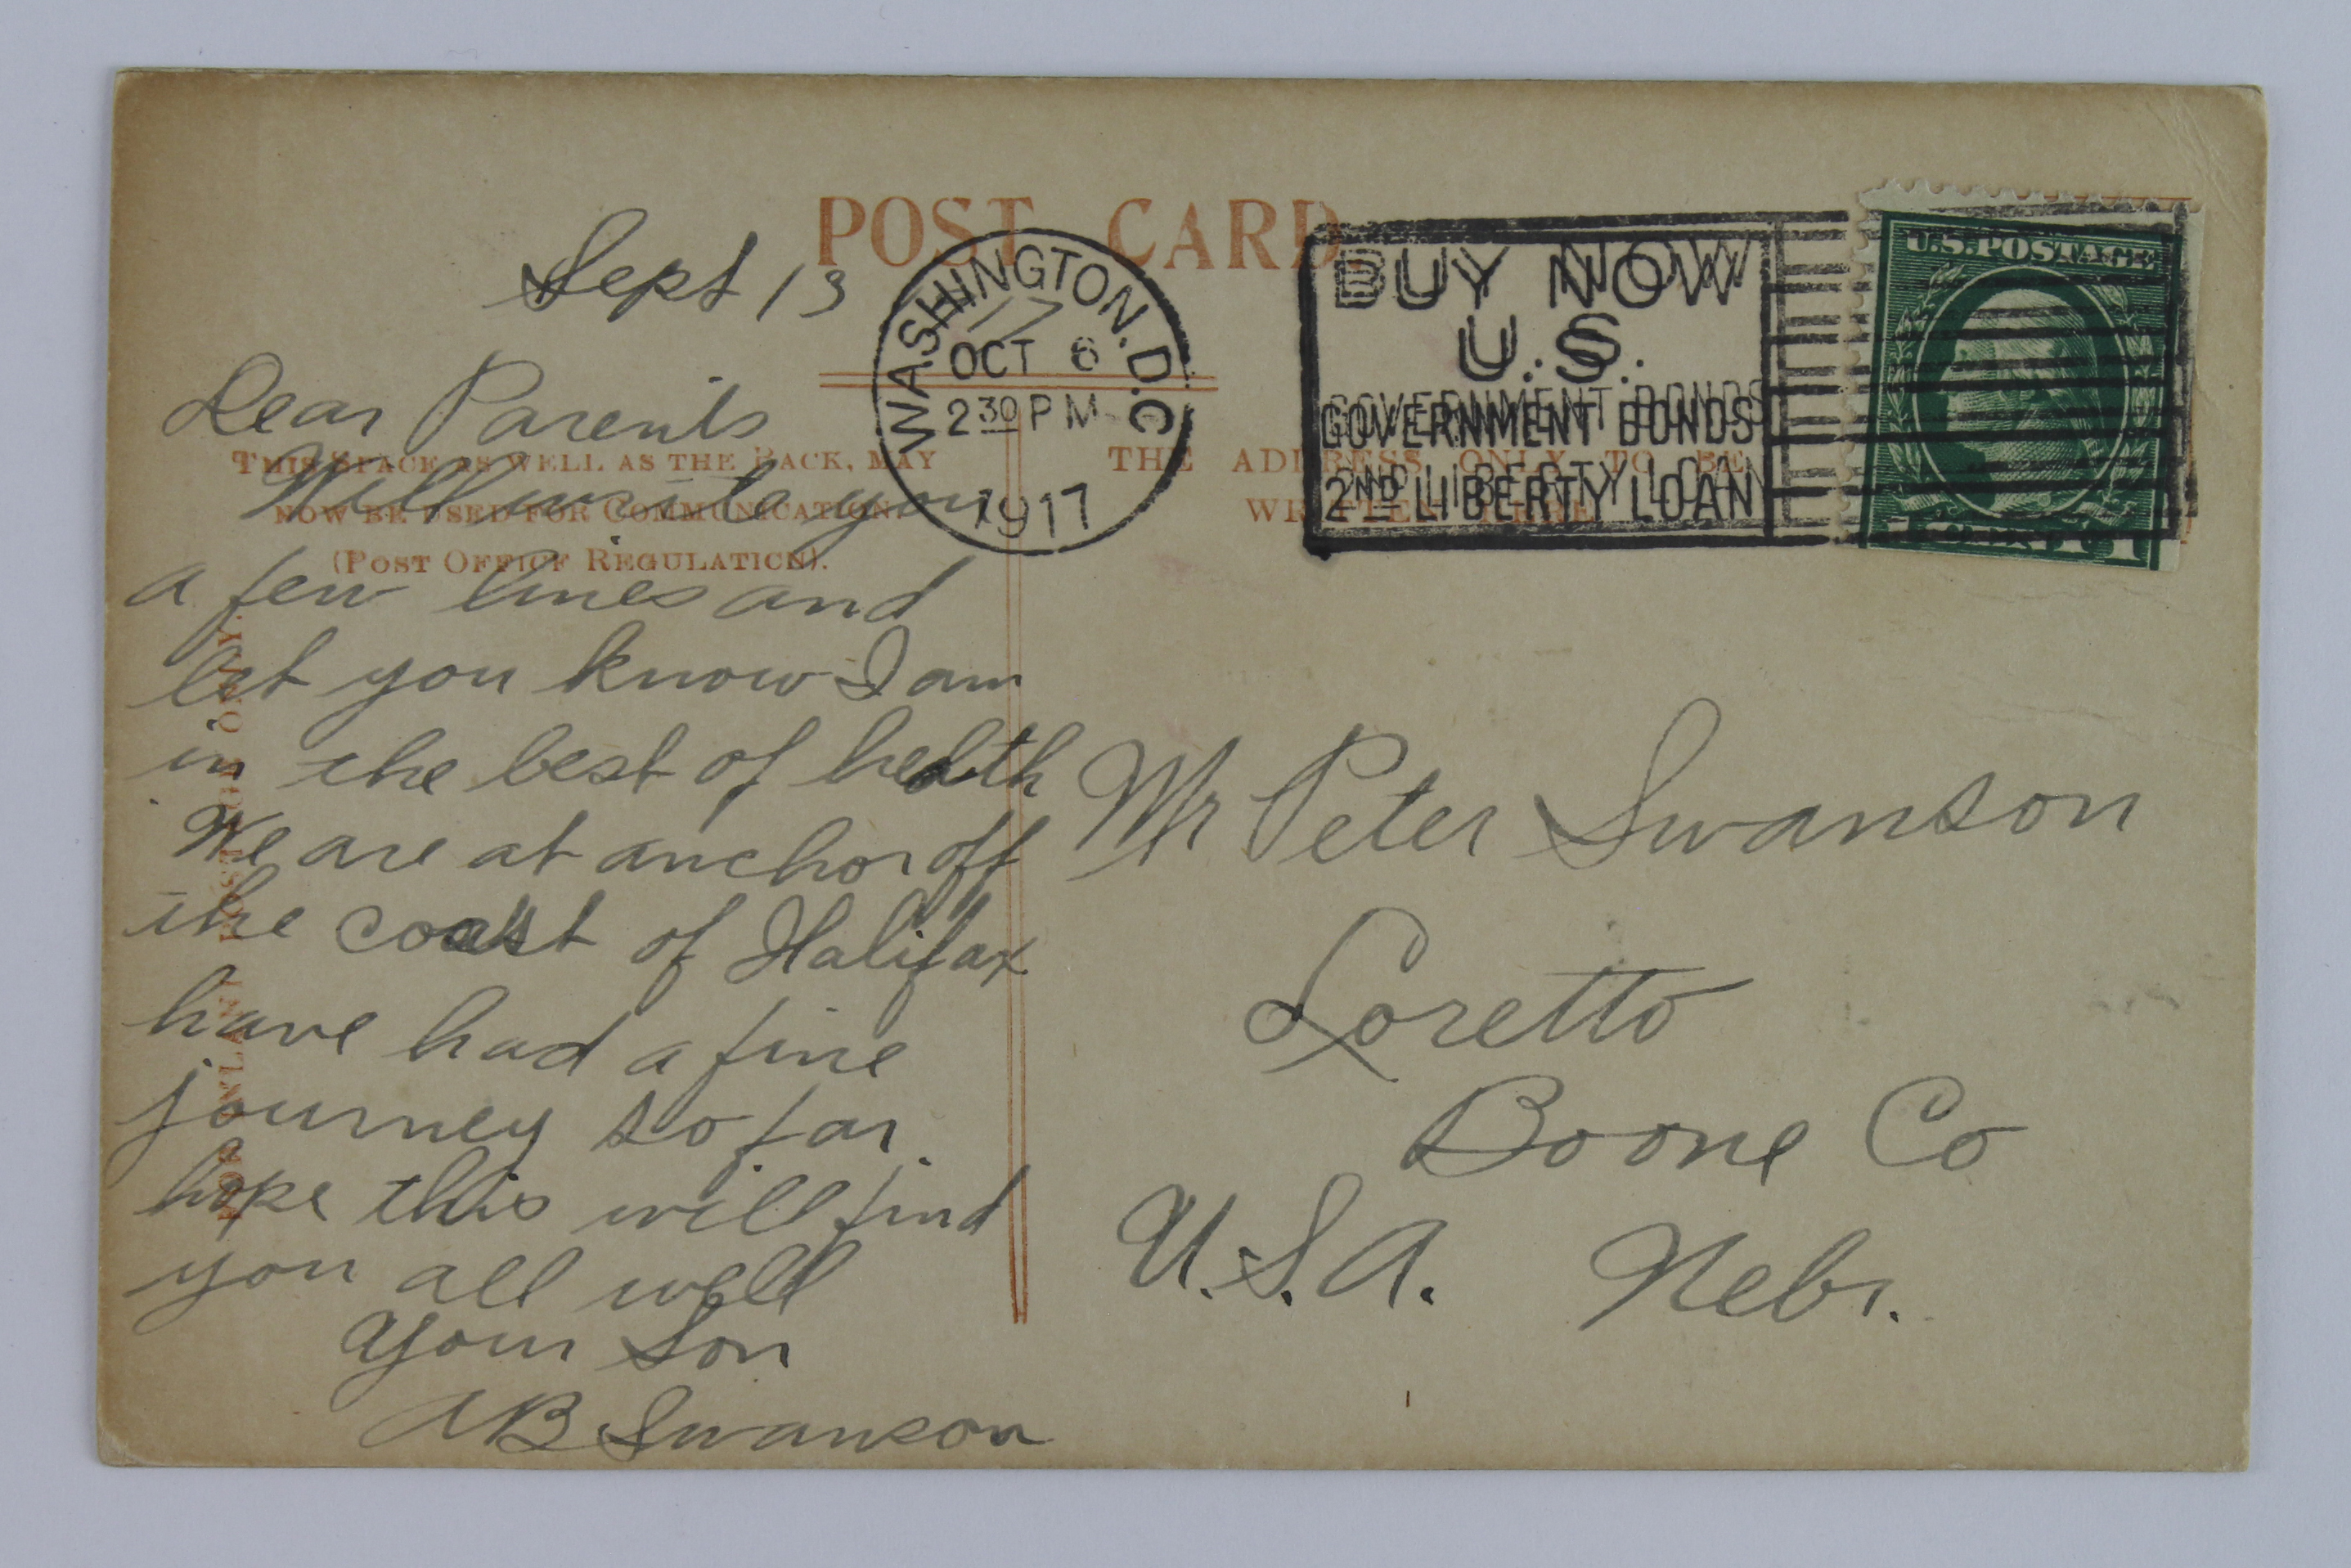 POST CARD
Sept 13
17
WASHINGTON. D.C.
OCT 6
2 30 PM
1917
BUY NOW
U.S.
GOVERNMENT BONDS
2ND LIBERTY LOAN
U.S. POSTAGE
1 CENT 1
THIS SPACE AS WELL AS THE BACK, MAY
NOW BE USED FOR COMMUNICATION.
(POST OFFICE REGULATION).
THE ADDRESS ONLY TO BE
WRITTEN HERE
FOR INLAND POSTAGE ONLY.
Dear Parents
Will write you
a few lines and
let you know I am
in the best of health
We are at anchor off
the coast of Halifax
have had a fine
journey so far
hope this will find
you all well
Your Son
AB Swanson
Mr Peter Swanson
Loretto
Boone Co
U.S.A. Nebr.